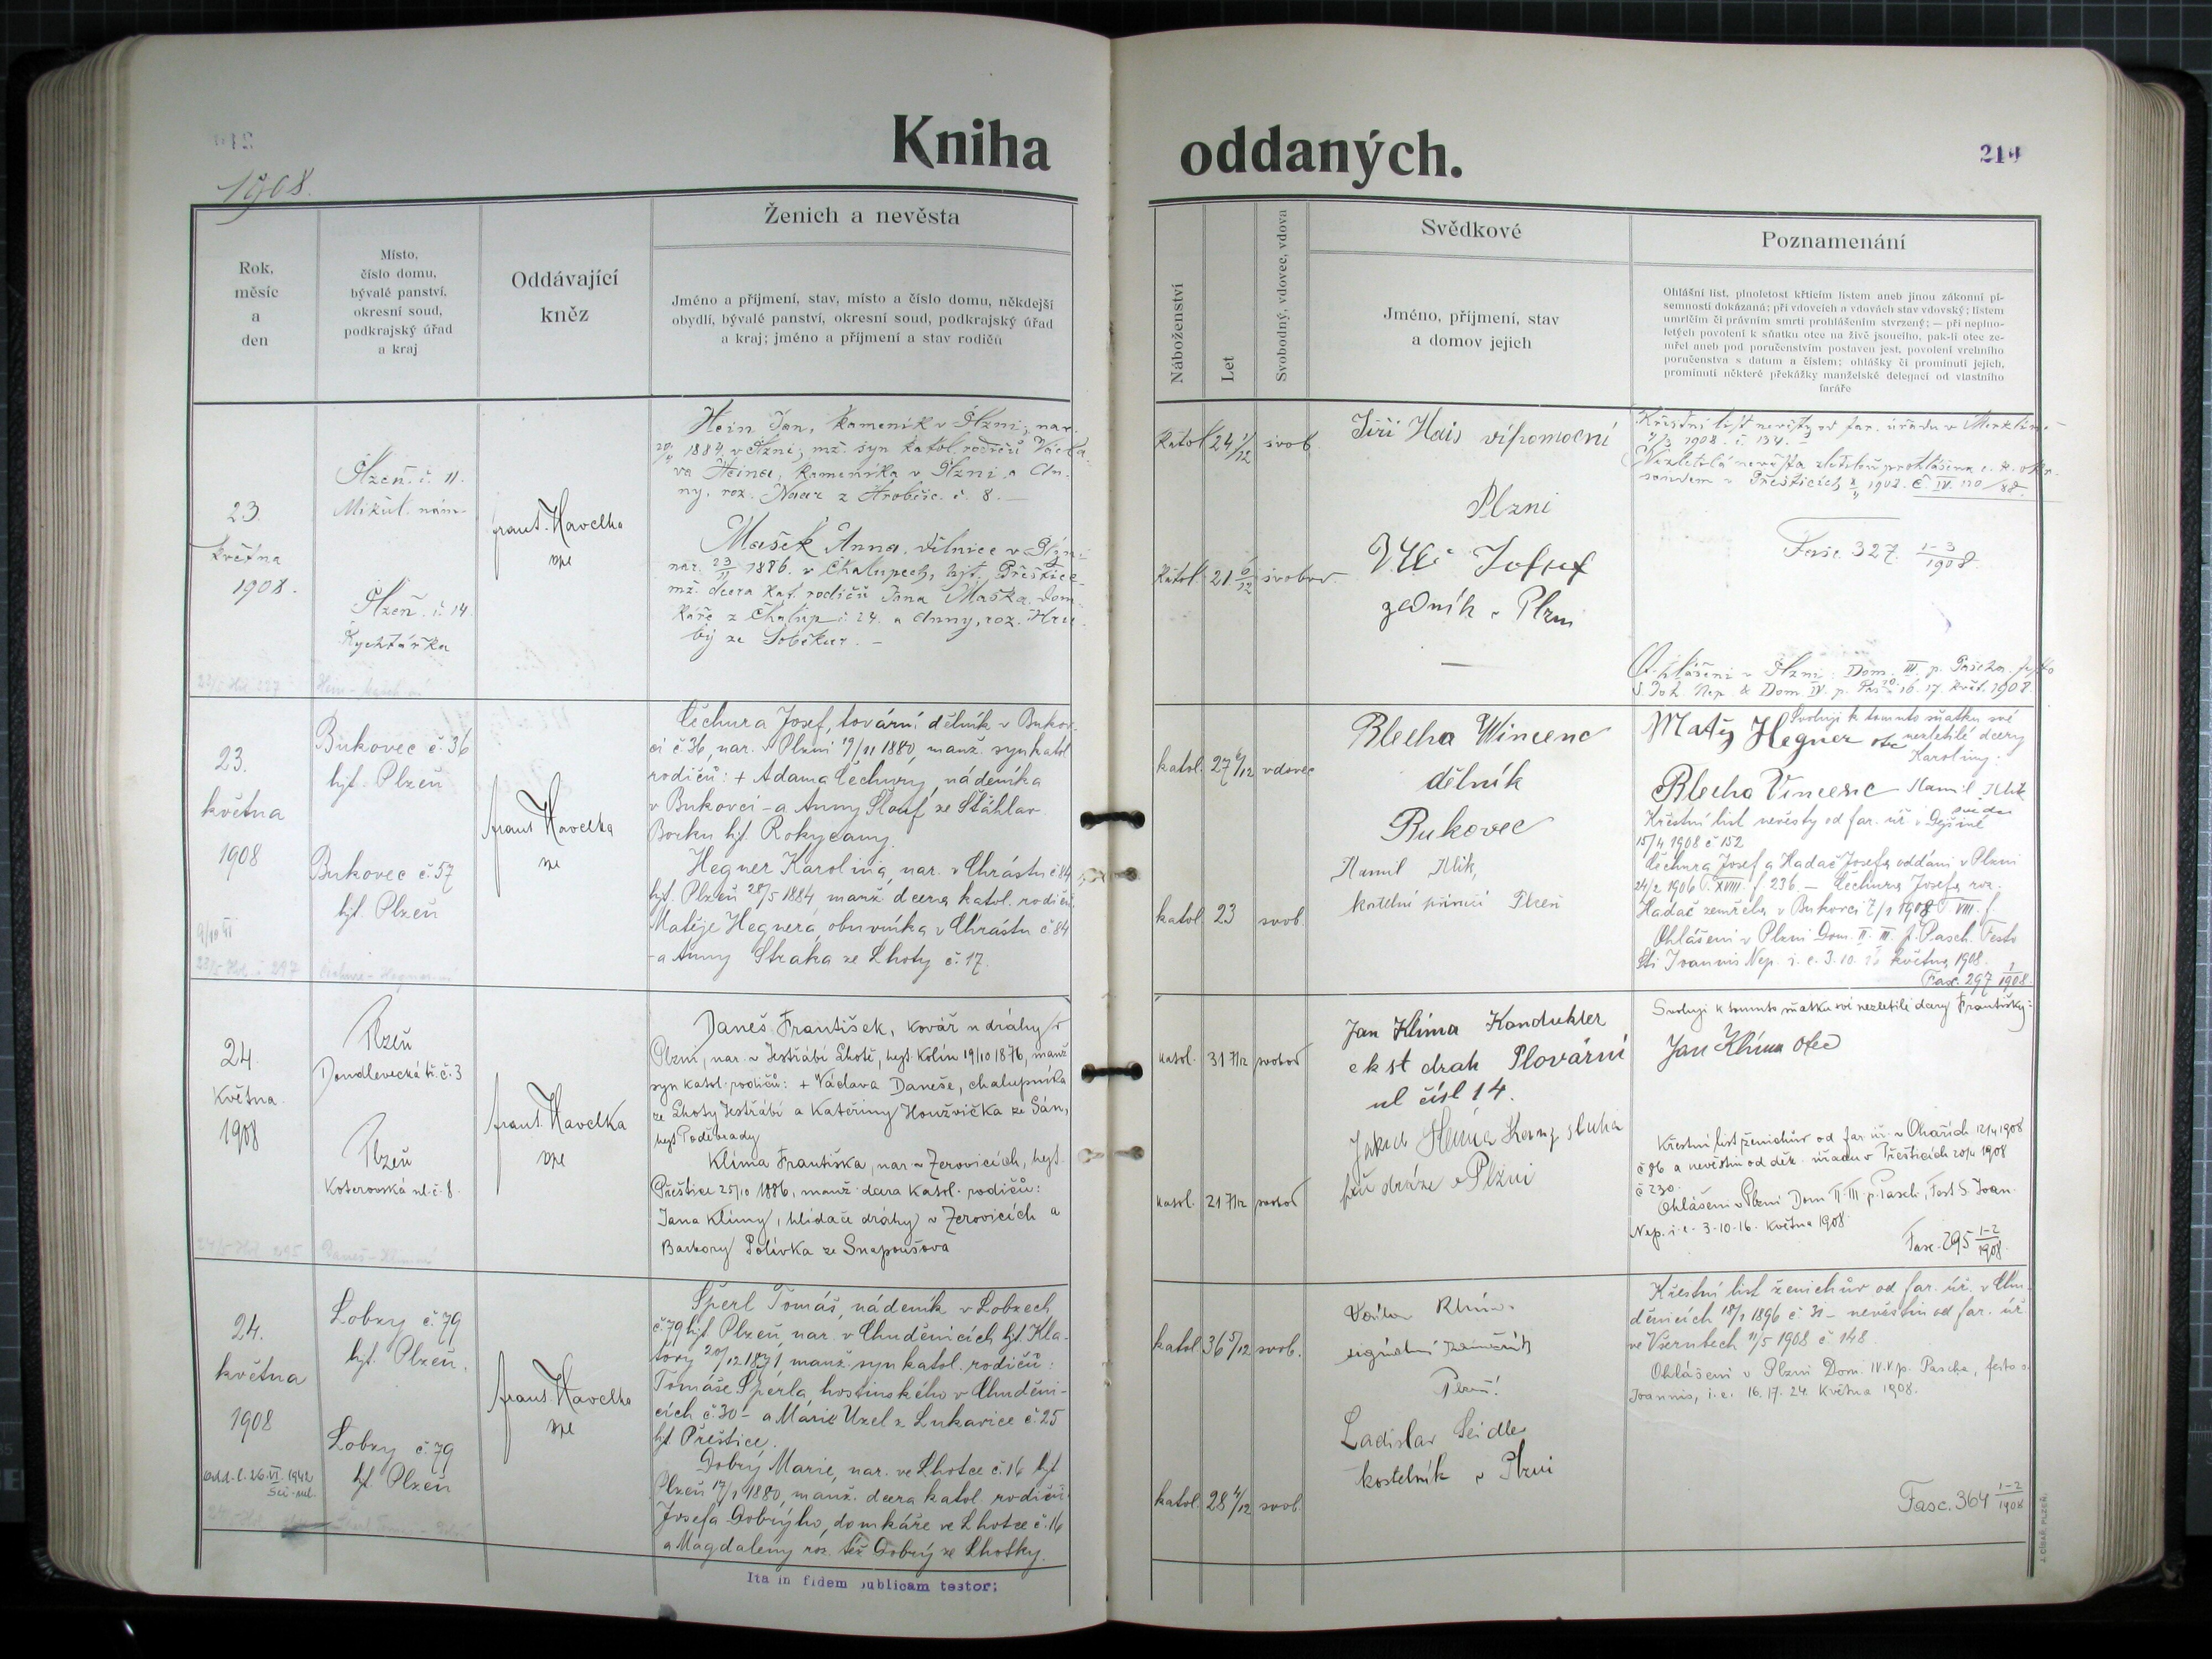 Kniha oddaných.
1908.
Rok,
měsíc
a
den
Místo,
číslo domu,
bývalé panství,
okresní soud,
podkrajský úřad
a kraj
Oddávající
kněz
Ženich a nevěsta
Jméno a příjmení, stav, místo a číslo domu, někdejší
obydlí, bývalé panství, okresní soud, podkrajský úřad
a kraj; jméno a příjmení a stav rodičů
Náboženství
Let
Svobodný, vdovec, vdova
Svědkové
Jméno, příjmení, stav
a domov jejich
Poznamenání
Ohlášní list, plnoletost křticím listem aneb jinou zákonní pí-
semností dokázaná; při vdovcích a vdovách stav vdovský; listem
umrlčím či právním smrti prohlášením stvrzený; — při neplno-
letých povolení k sňatku otce na živě jsoucího, pak-li otec ze-
mřel aneb pod poručenstvím postaven jest, povolení vrchního
poručenstva s datum a číslem; ohlášky či prominutí jejich,
prominutí některé překážky manželské delegací od vlastního
faráře
23.
května
1908.
Plzeň. č. 11.
Mikul. nám.
Plzeň. č. 14.
Rychtářka
Frant. Havelka
Hein Jan, kameník v Plzni, nar.
1884 v Plzni, mž. syn katol. rodičů Václa-
va Heina, kameníka v Plzni a An-
ny, roz. z Hrobčic. č. 8. —
Mašek Anna, dělnice v Plzni
nar. 23/11 1886. v Chalupech, hjt. Přeštice
mž. dcera kat. rodičů Jana Maška, dom-
káře z Chalup č. 24. a Anny, roz. Hru-
bý ze Soběkur. —
katol. 24 svob.
katol. 21 6/12 svobod.
Jiří Hais výpomocní
Plzni
Vlč Josef
zedník v Plzni
Křestní list nevěsty od far. úřadu v Merklíně
1908. č. 134.
Nezletilá nevěsta zletilou prohlášena c. k. okr.
soudem v Přešticích
Fasc. 327. 1-3/1908.
Ohlášeni v Plzni: Dom. III. p. Pascha, festo
S. Joh. Nep. & Dom. IV. p. Pas. 10. 16. 17. květ. 1908.
23.
května
1908
Bukovec č. 36
hjt. Plzeň
Bukovec č. 57
hjt. Plzeň
Frant. Havelka
Čechura Josef, tovární dělník v Bukov-
ci č. 36, nar. v Plzni 19/11 1880, manž. syn katol.
rodičů: + Adama Čechury, nádeníka
v Bukovci - a Anny Šlouf ze Šťáhlav
Borku hjt. Rokycany.
Hegner Karolina, nar. v Chrástu č. 84
hjt. Plzeň 28/5 1884 manž. dcera katol. rodičů
Matěje Hegnera, obuvníka v Chrástu č. 84
- a Anny Straka ze Lhoty č. 17.
katol. 27 6/12 vdovec
katol. 23 svob.
Blecha Wincenc
dělník
Bukovec
Kamil
kostelní Plzeň
Svoluji k tomuto sňatku své
Matěj Hegner otec nezletilé dcery
Karoliny.
Blecha Vincenc Kamil
Křestní list nevěsty od far. úř. v Dýšině
15/4 1908 č 152
Čechura Josef a Hadač Josefa oddáni v Plzni
24/2 1906 T. XVIII. f 236. — Čechura Josefa roz.
Hadač zemřela v Bukovci 7/1 1908 T. VIII. f.
Ohlášeni v Plzni Dom. II. III. p. Pasch. Festo
Sti Joannis Nep. i. e. 3. 10. 16. května 1908.
Fasc. 297 1/1908.
24.
května
1908
Plzeň
Doudlevecká tř. č. 3
Plzeň
Koterovská ul. č. 8.
Frant. Havelka
Daneš František, kovář u dráhy v
Plzni, nar. v Jestřábí Lhotě, hejt. Kolín 19/10 1876, manž.
syn katol. rodičů: + Václava Daneše, chalupníka
ze Lhoty Jestřábí a Kateřiny Houžvička ze Sán,
hejt. Poděbrady
Klíma Františka, nar. v Žerovicích, hejt.
Přeštice 25/10 1886, manž. dcera katol. rodičů:
Jana Klímy, hlídače dráhy v Žerovicích a
Barbory Polívka ze Snopoušova
katol. 31 7/12 svobod.
katol. 21 7/12 svobod.
Jan Klíma Kondukter
ck st drah Plovární
ul čísl 14.
Jakub
při dráze v Plzni
Svoluji k tomuto sňatku své nezletilé dcery Františky:
Jan Klíma otec
Křestní list ženichův od far. úř. v Ohařích 12/4 1908
č 86 a nevěstin od děk. úřadu v Přešticích 20/4 1908
č 230.
Ohlášeni v Plzni Dom II. III. p. Pasch, Fest S. Joan.
Nep. i. e. 3-10-16. května 1908.
Fasc. 295 1-2/1908.
24.
května
1908
26. VI. 1942
Lobzy č. 79
hjt. Plzeň.
Lobzy č. 79
hjt. Plzeň
Frant. Havelka
Šperl Tomáš, nádeník v Lobzech
č. 79 hjt. Plzeň, nar. v Chuděnicích hjt. Kla-
tovy 20/12 1871 manž. syn katol. rodičů:
Tomáše Šperla, hostinského v Chuděni-
cích č. 30 - a Marie Uzel z Lukavice č. 25
hjt. Přeštice.
Dobrý Marie, nar. ve Lhotce č. 16 hjt
Plzeň 17/1 1880, manž. dcera katol. rodičů:
Josefa Dobrýho, domkáře ve Lhotce č. 16
a Magdaleny roz. též Dobrý ze Lhotky.
katol. 36 5/12 svob.
katol. 28 4/12 svob.
Plzeň
Ladislav Seidler
kostelník v Plzni
Křestní list ženichův od far. úř. v Chu-
děnicích 18/1 1896 č 31 - nevěstin od far. úř.
ve Všerubech 11/5 1908 č. 148.
Ohlášeni v Plzni Dom. IV. V. p. Pascha, festo s.
Joannis, i. e. 16. 17. 24. května 1908.
Fasc. 364 1-2/1908
Ita in fidem publicam testor:
J. CÍSAŘ, PLZEŇ.